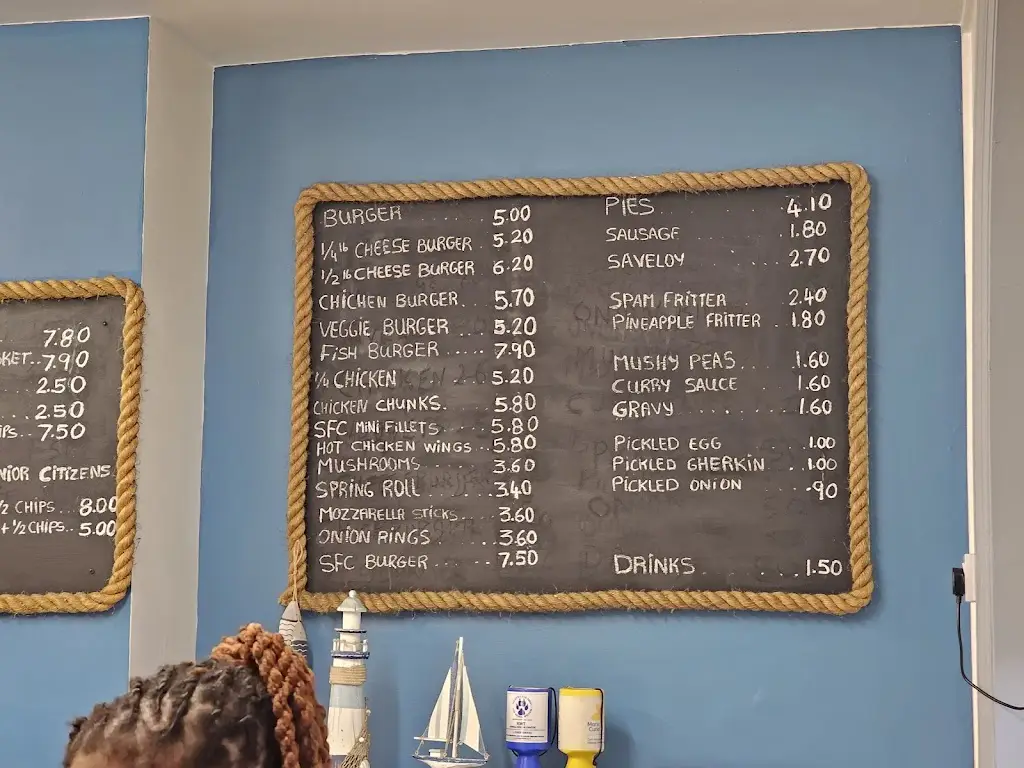 7.80
KET..7.90
2.50
2.50
IPS..7.50
NIOR CITIZENS
1/2 CHIPS...8.00
+ 1/2 CHIPS..5.00
BURGER ..... 5.00
1/4 lb CHEESE BURGER .. 5.20
1/2 lb CHEESE BURGER 6.20
CHICHEN BURGER... 5.70
VEGGIE BURGER .... 5.20
FISH BURGER ..... 7.90
1/4 CHICKEN ..... 5.20
CHICKEN CHUNKS..... 5.80
SFC MINI FILLETS..... 5.80
HOT CHICKEN WINGS .. 5.80
MUSHROOMS ..... 3.60
SPRING ROLL ..... 3.40
MOZZARELLA STICKS.... 3.60
ONION RINGS ..... 3.60
SFC BURGER ...... 7.50
PIES ..... 4.10
SAUSAGE ..... 1.80
SAVELOY ..... 2.70
SPAM FRITTER .... 2.40
PINEAPPLE FRITTER .. 1.80
MUSHY PEAS.... 1.60
CURRY SAUCE ... 1.60
GRAVY ........ 1.60
PICKLED EGG ... 1.00
PICKLED GHERKIN ..1.00
PICKLED ONION ... -90
DRINKS ........1.50